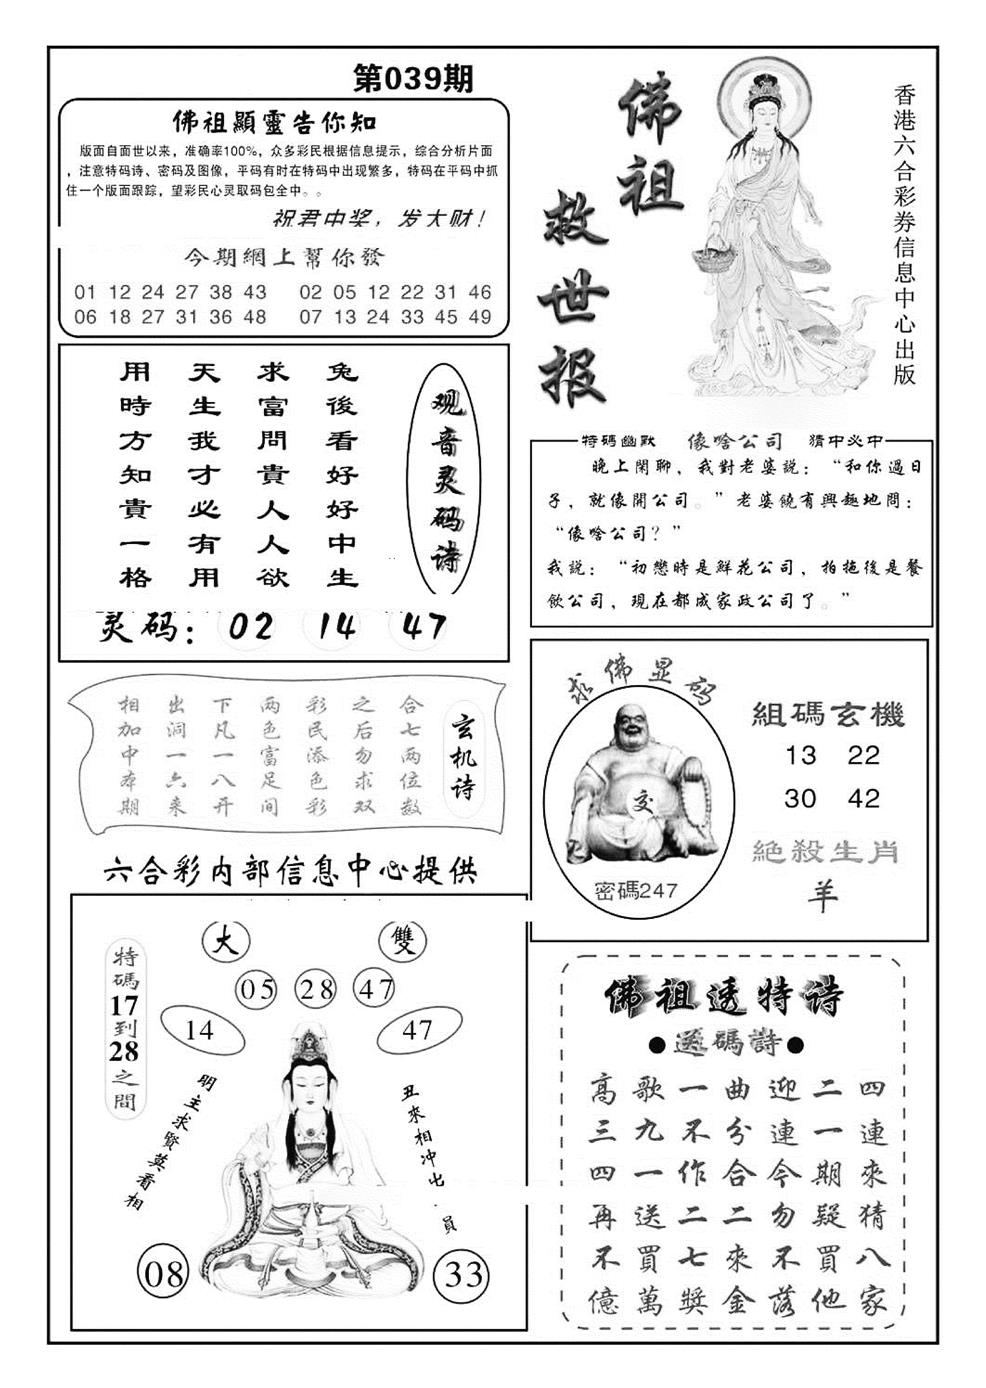 第039期
佛祖顯靈告你知
版面自面世以来，准确率100%，众多彩民根据信息提示，综合分析片面
，注意特码诗、密码及图像，平码有时在特码中出现繁多，特码在平码中抓
住一个版面跟踪，望彩民心灵取码包全中。。
祝君中奖，发大财！
今期網上幫你發
01 12 24 27 38 43 02 05 12 22 31 46
06 18 27 31 36 48 07 13 24 33 45 49
佛祖
救世报
香港六合彩券信息中心出版
观音灵码诗
兔後看好好中生
求富問貴人人欲
天生我才必有用
用時方知貴一格
灵码：02 14 47
特碼幽默 像啥公司 猜中必中
晚上閑聊，我對老婆説：“和你過日
子，就像開公司。”老婆饒有興趣地問：
“像啥公司？”
我説：“初戀時是鮮花公司，拍拖後是餐
飲公司，現在都成家政公司了。”
玄机诗
合七两位数
之后勿求双
彩民添色彩
两色富足间
下凡一八开
出洞一六来
相加中本期
求佛显码
交
密碼247
組碼玄機
13 22
30 42
絕殺生肖
羊
六合彩内部信息中心提供
大 雙
05 28 47
14 47
特碼17到28之間
明主求賢英看相
丑來相冲出
員
08 33
佛祖透特诗
●送碼詩●
高歌一曲迎二四
三九不分連一連
四一作合今期來
再送二二勿疑猜
不買七來不買八
億萬獎金落他家